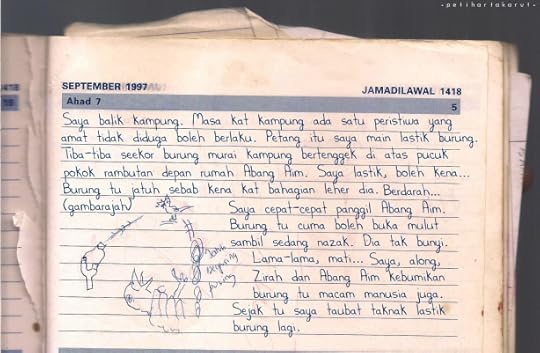 -petihartakarut-
SEPTEMBER 1997
JAMADILAWAL 1418
Ahad 7
5
Saya balik kampung. Masa kat kampung ada satu peristiwa yang
amat tidak diduga boleh berlaku. Petang itu saya main lastik burung.
Tiba-tiba seekor burung murai kampung bertenggek di atas pucuk
pokok rambutan depan rumah Abang Aim. Saya lastik, boleh kena...
Burung tu jatuh sebab kena kat bahagian leher dia. Berdarah...
(gambarajah)
Saya cepat-cepat panggil Abang Aim.
Burung tu cuma boleh buka mulut
sambil sedang nazak. Dia tak bunyi.
Lama-lama, mati... Saya, along,
Zirah dan Abang Aim kebumikan
burung tu macam manusia juga.
Sejak tu saya taubat taknak lastik
burung lagi.